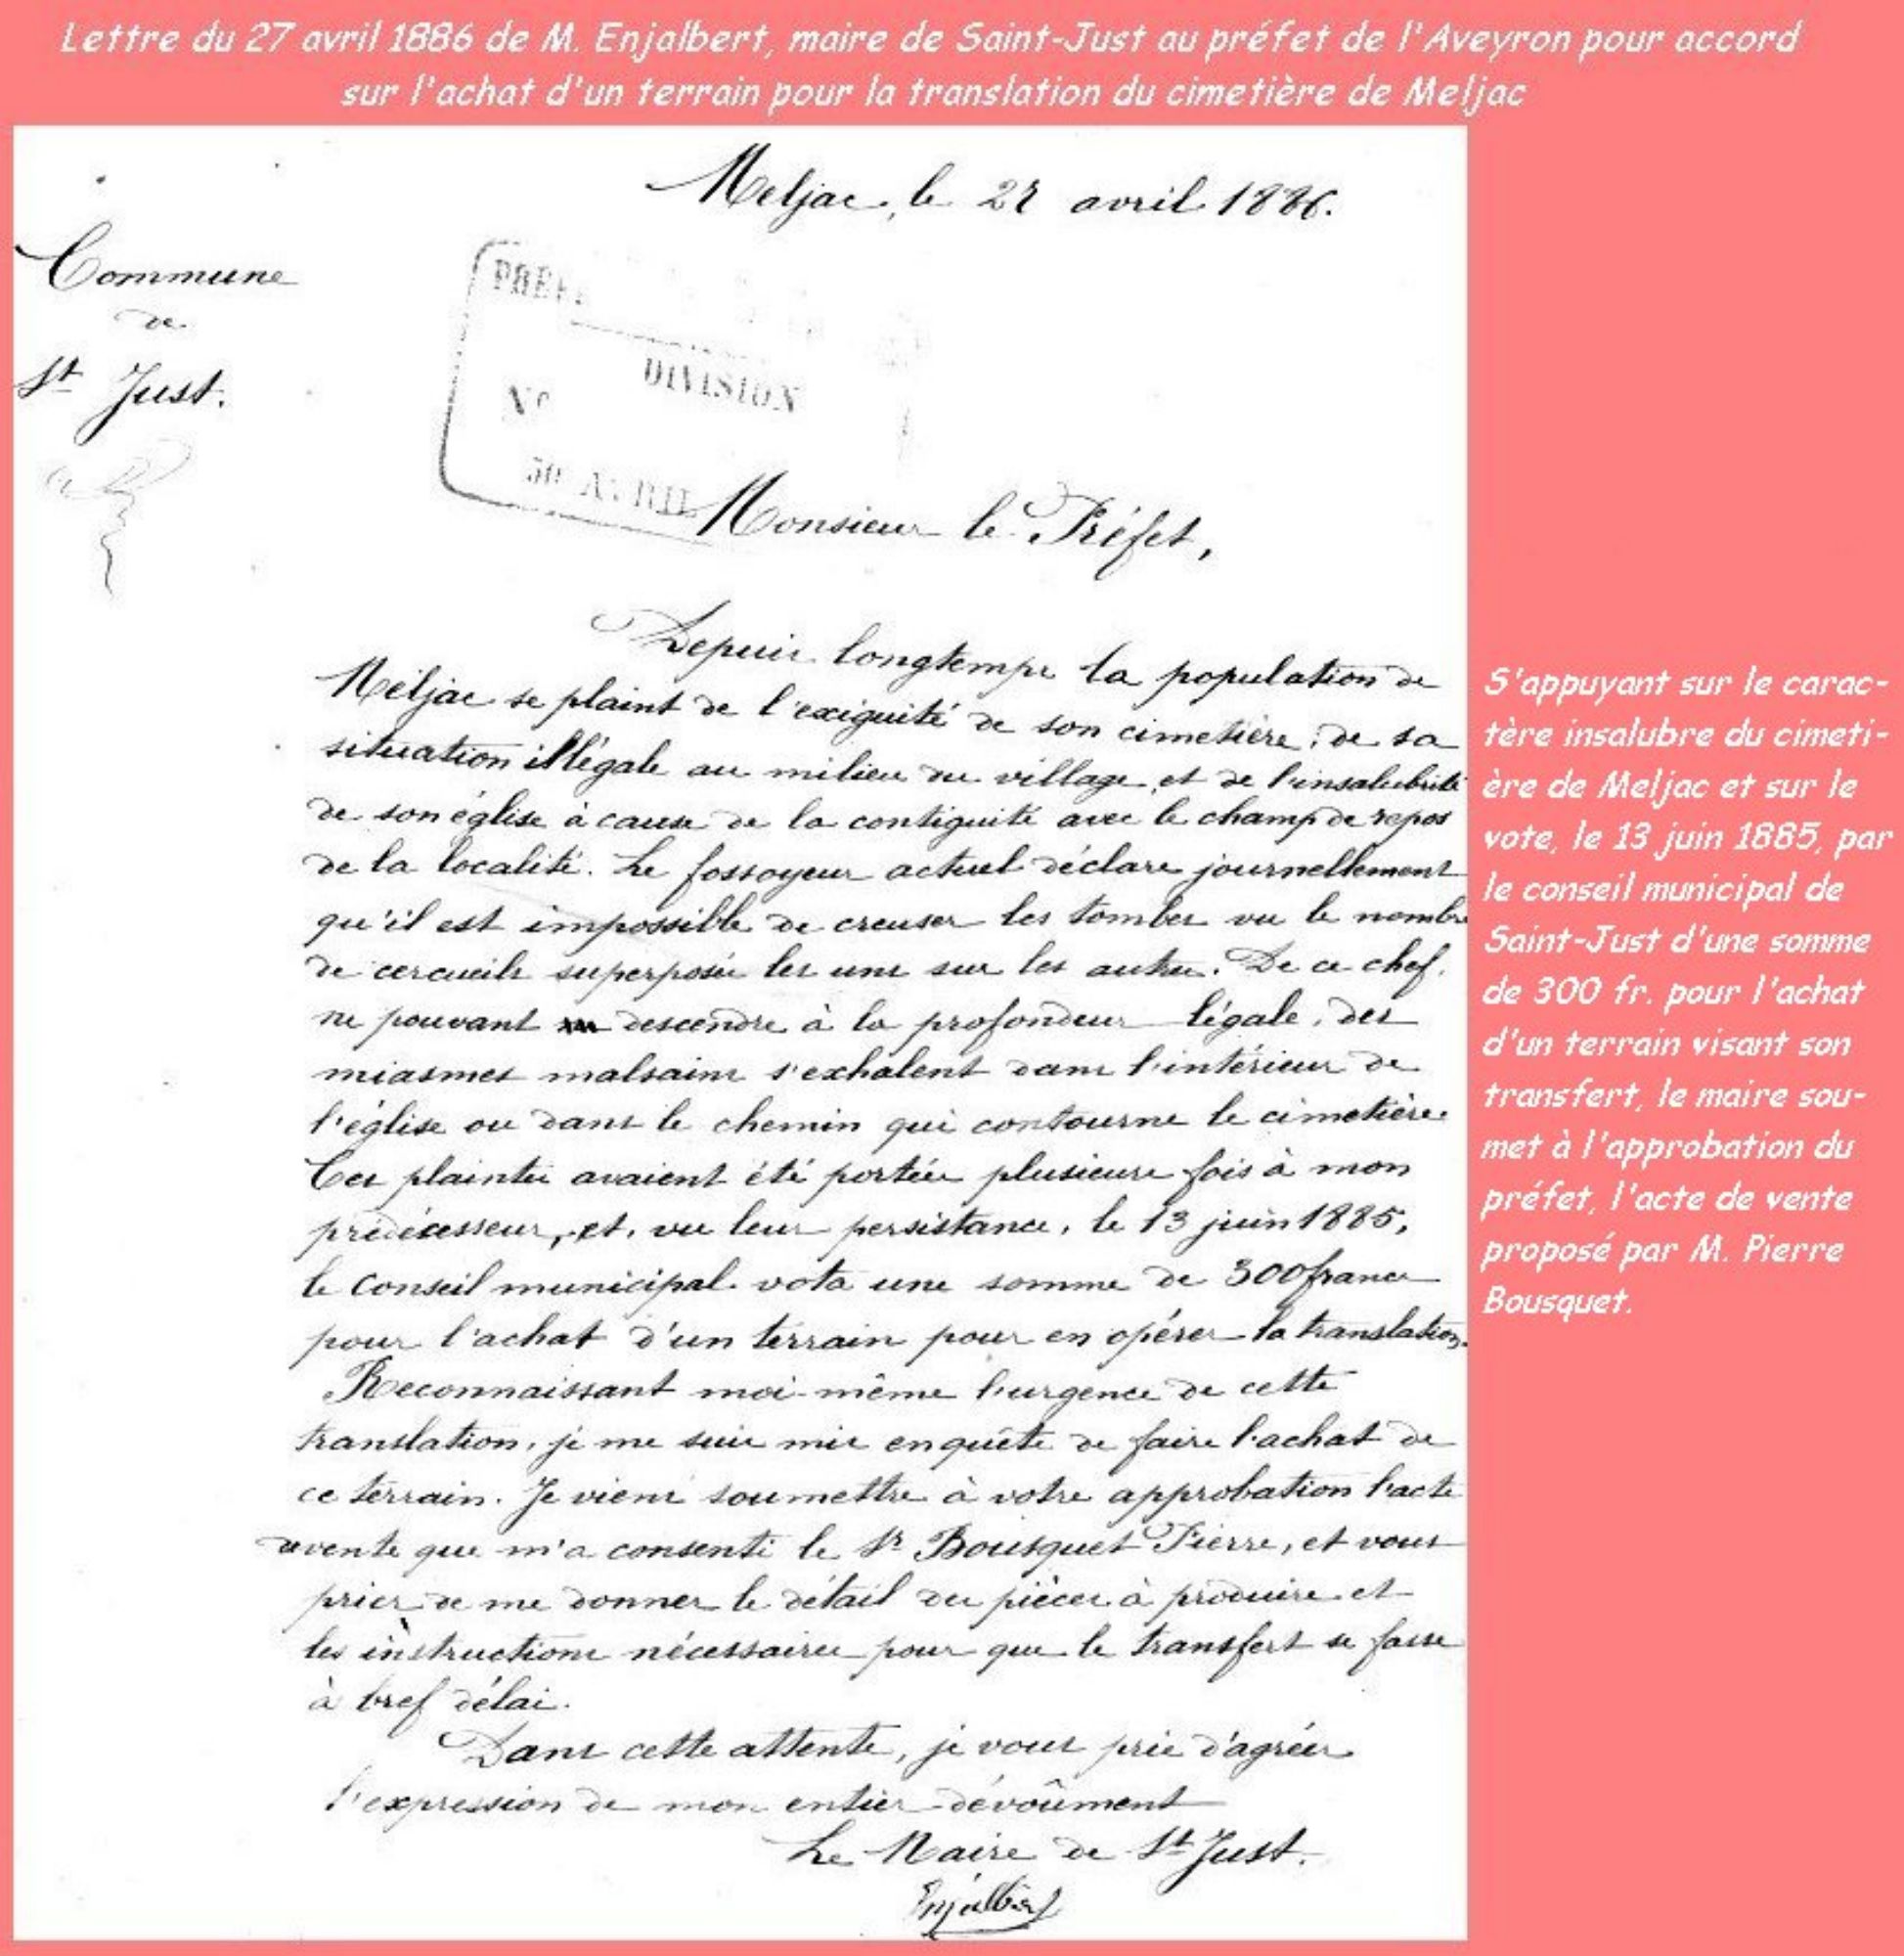 Lettre du 27 avril 1886 de M. Enjalbert, maire de Saint-Just au préfet de l'Aveyron pour accord
sur l'achat d'un terrain pour la translation du cimetière de Meljac
Meljac, le 27 avril 1886.
Commune
de
St Just.
DIVISION
No
30 AVRIL
Monsieur le Préfet,
Depuis longtemps la population de
Meljac se plaint de l'exiguité de son cimetière, de sa
situation illégale au milieu du village, et de l'insalubrité
de son église à cause de la contiguité avec le champ de repos
de la localité. Le fossoyeur actuel déclare journellement
qu'il est impossible de creuser les tombes vu le nombre
de cercueils superposés les uns sur les autres. De ce chef,
ne pouvant descendre à la profondeur légale, des
miasmes malsains s'exhalent dans l'intérieur de
l'église ou dans le chemin qui contourne le cimetière.
Ces plaintes avaient été portées plusieurs fois à mon
prédécesseur, et, vu leur persistance, le 13 juin 1885,
le Conseil municipal vota une somme de 300 francs
pour l'achat d'un terrain pour en opérer la translation.
Reconnaissant moi-même l'urgence de cette
translation, je me suis mis en quête de faire l'achat de
ce terrain. Je viens soumettre à votre approbation l'acte
de vente que m'a consenti le Sr Bousquet Pierre, et vous
prier de me donner le détail des pièces à produire et
les instructions nécessaires pour que le transfert se fasse
à bref délai.
Dans cette attente, je vous prie d'agréer
l'expression de mon entier dévoûment
Le Maire de St Just.
Enjalbert
S'appuyant sur le carac-
tère insalubre du cimeti-
ère de Meljac et sur le
vote, le 13 juin 1885, par
le conseil municipal de
Saint-Just d'une somme
de 300 fr. pour l'achat
d'un terrain visant son
transfert, le maire sou-
met à l'approbation du
préfet, l'acte de vente
proposé par M. Pierre
Bousquet.